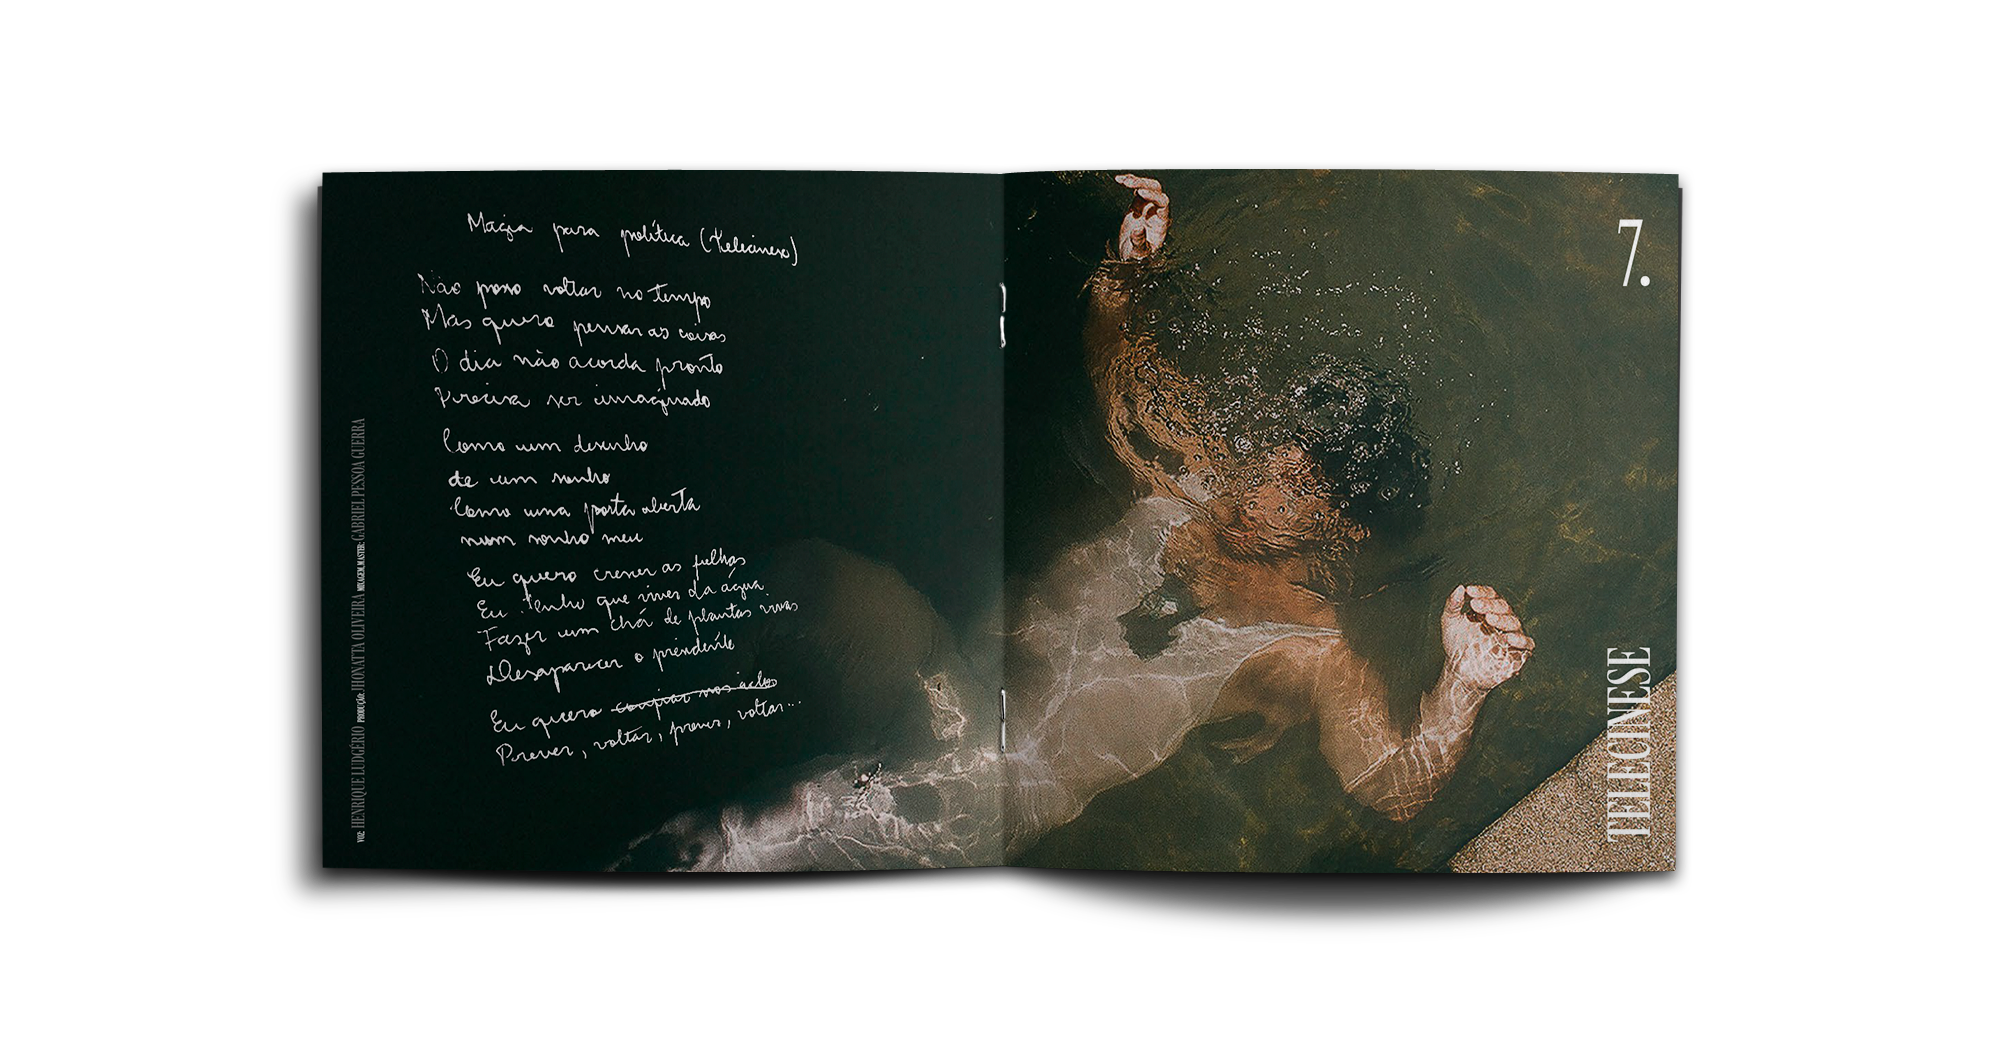 Magia para política (telecinese)
Não posso voltar no tempo
Mas quero pensar as coisas
O dia não acorda pronto
Precisa ser imaginado
Como um desenho
de um sonho
Como uma porta aberta
num sonho meu
Eu quero crescer as folhas
Eu tenho que viver da água
Fazer um chá de plantas vivas
Desaparecer o presidente
Eu quero confiar nos
Prever, voltar, prever, voltar...
VOZ: HENRIQUE LUDGÉRIO PRODUÇÃO: JHONATTA OLIVEIRA MIXAGEM, MASTER: GABRIEL PESSOA GUERRA
7.
TELECINESE